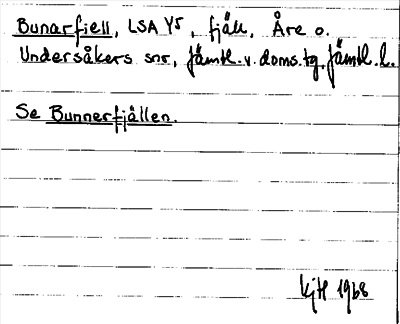 Bunarfiell, LSA Y5, fjäll, Åre o.
Undersåkers snr, Jämtl. v. doms. tg, Jämtl. l.
Se Bunnerfjällen.
KjH 1968